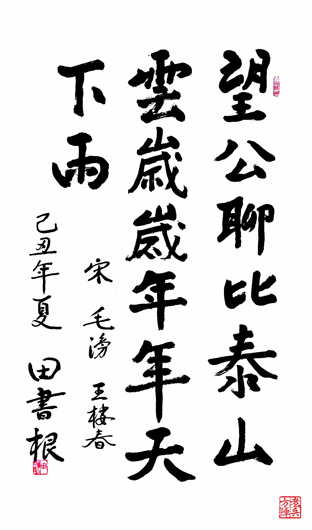 望公聊比泰山
雲歲歲年年天
下雨
宋 毛滂 玉樓春
己丑年夏
田書根